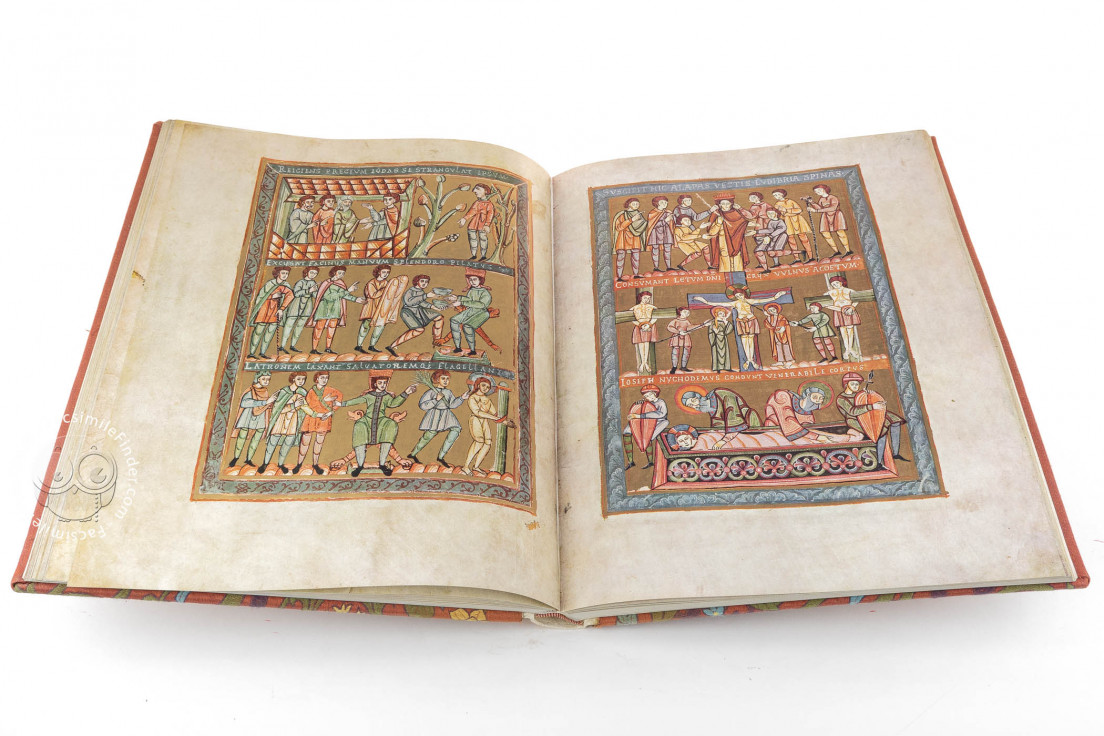 REICIENS PRECIUM IUDAS SE STRANGULAT IPSUM
EXCUSANT FACINUS MANUUM SPLENDORE PILATUS
LATRONEM LAXANT SALVATOREMQ FLAGELLANT
SUSCIPIT HIC ALAPAS VESTIS LUDIBRIA SPINAS
CONSUMANT LETUM DNI CRUX VULNUS ACOETUM
IOSEPH NYCHODEMUS CONDUNT VENERABILE CORPUS
FacsimileFinder.com